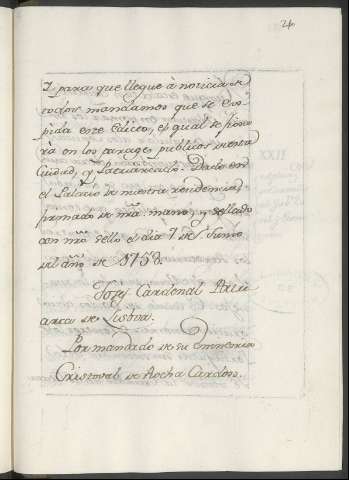 24
Y para que llegue à noticia de
todos mandamos que se ex-
pida este Edicto, el qual se fixa-
rà en los parages publicos de esta
Ciudad, y Patriarcado. Dado en
el Palacio de nuestra residencia,
firmado de nra mano, y sellado
con nro sello el dia 7 de Junio
del año de 1758.
Josef Cardenal Patri-
arca de Lisboa.
Por mandado de su Eminencia
Cristoval de Rocha Cardoso.
XXII